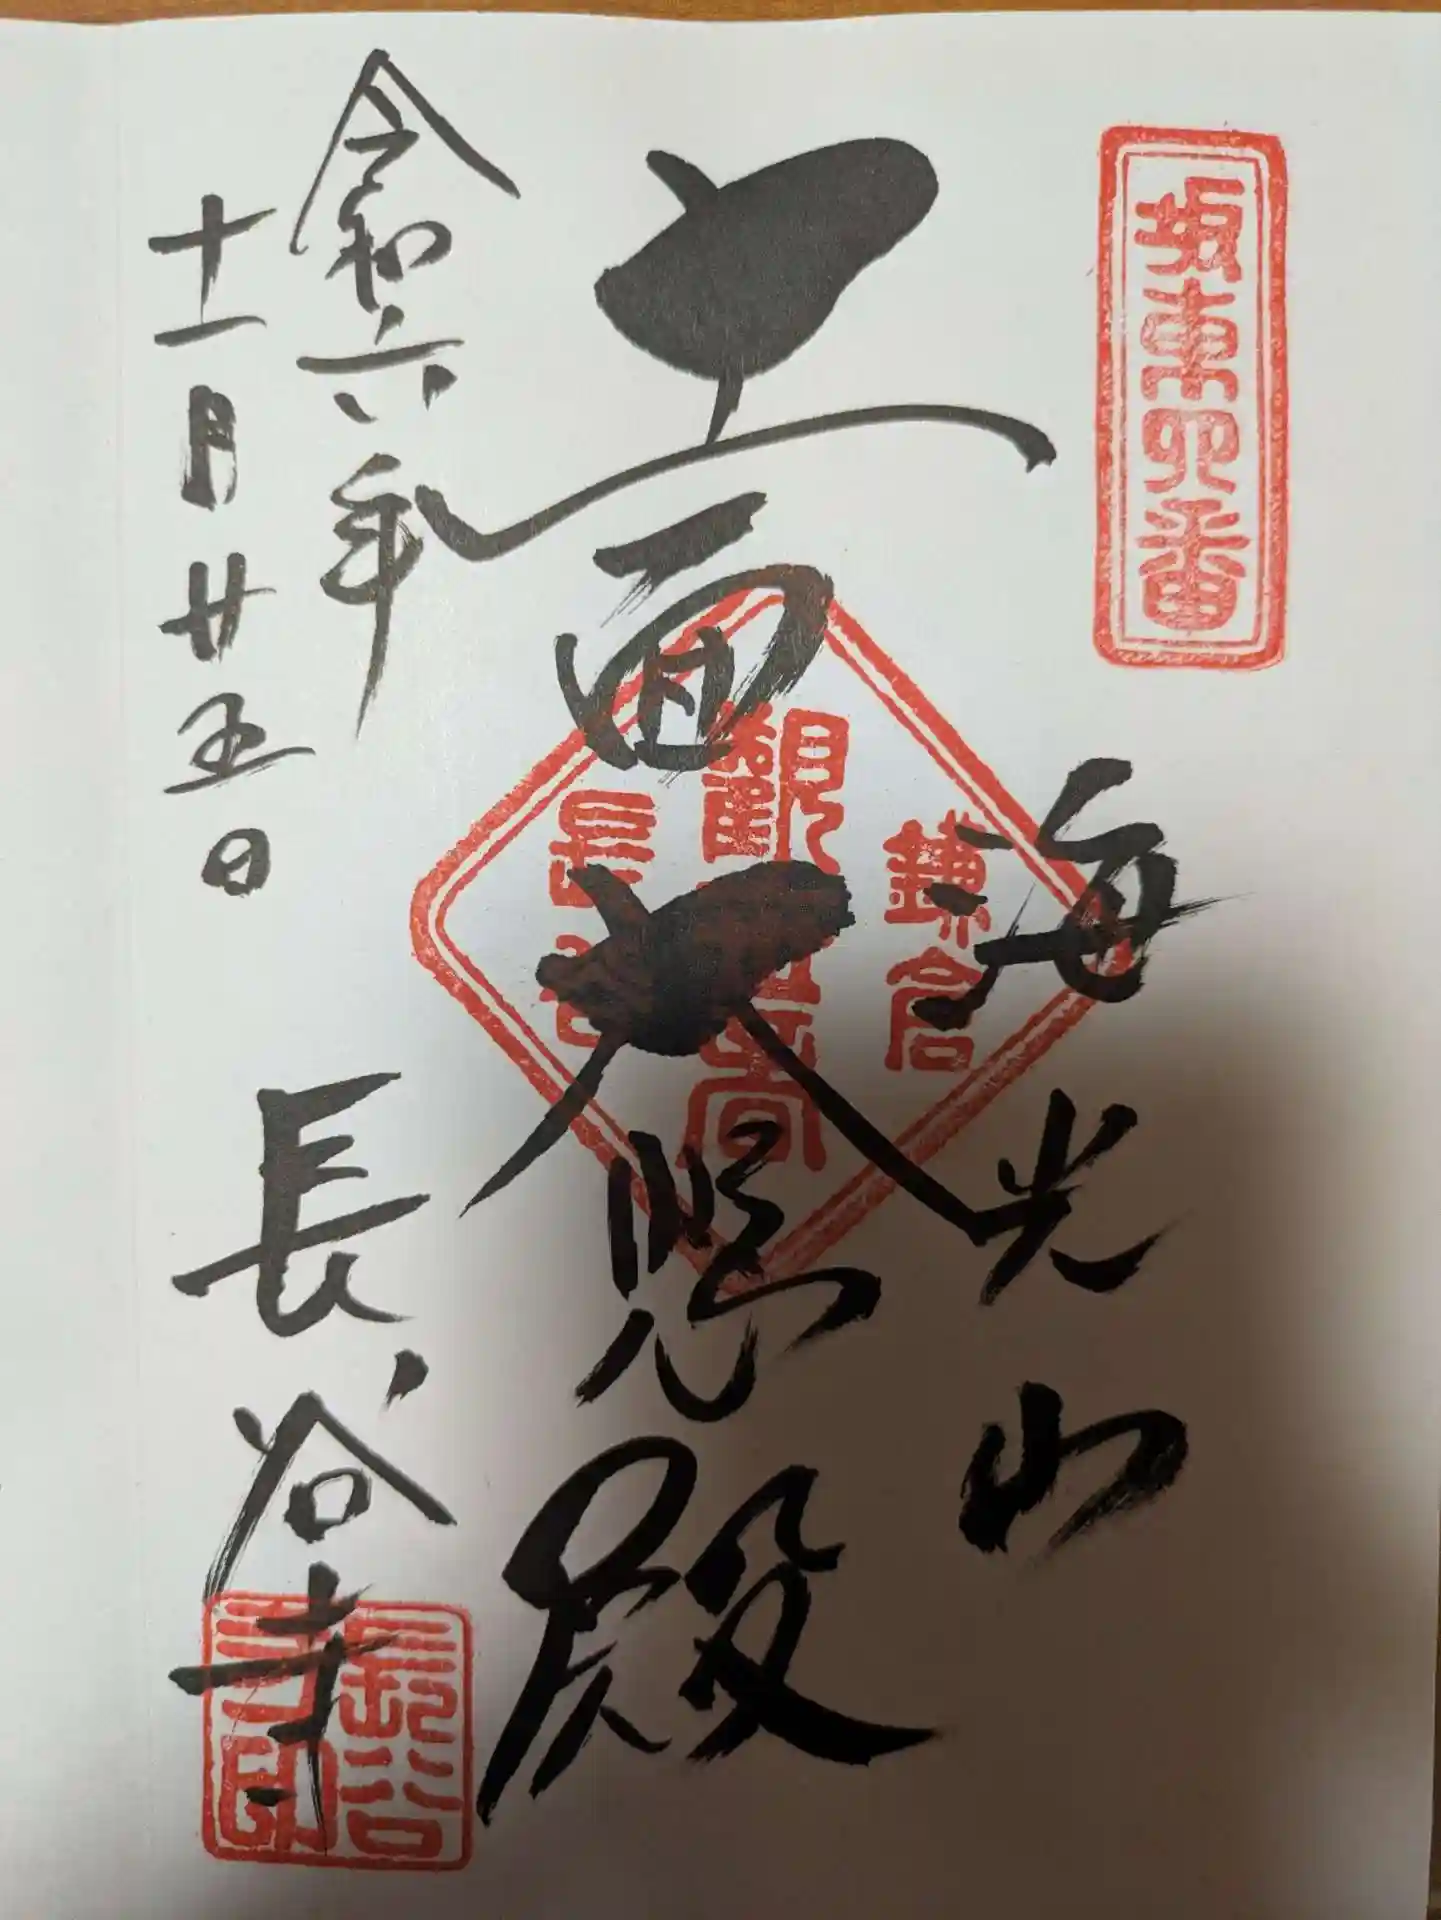 坂東四番
海光山
十一面大悲殿
鎌倉
観世音
長谷
令和六年
十一月廿五日
長谷寺
長谷寺印